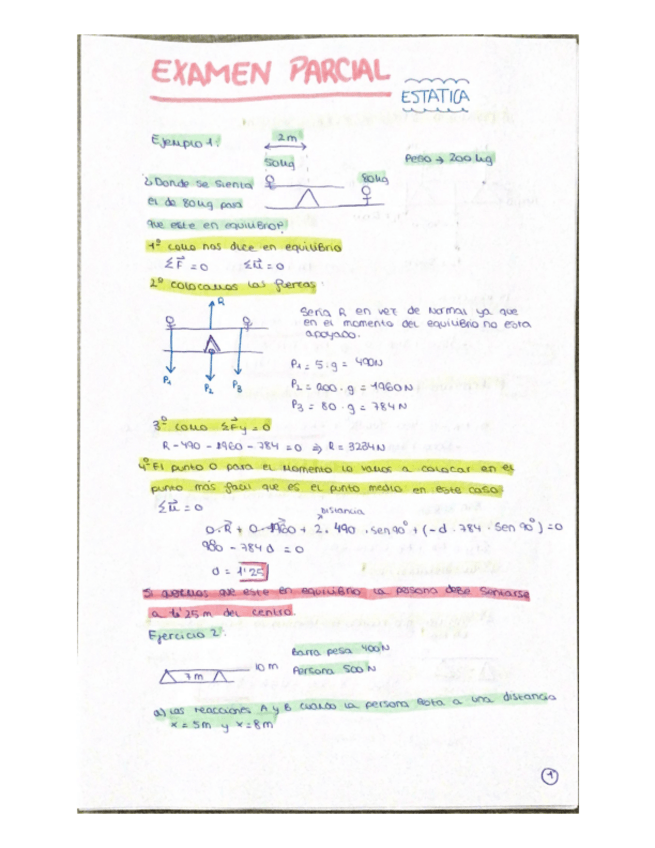 EXAMEN PARCIAL
ESTATICA
Ejemplo 1:
2m
50kg
80kg
Peso → 200 kg
¿Donde se sienta
el de 80kg para
que este en equilibrio?
1º como nos dice en equilibrio
ΣF⃗ = 0 ΣM⃗ = 0
2º colocamos las fuerzas:
R
P1
P2
P3
Seria R en vez de Normal ya que
en el momento del equilibrio no esta
apoyado.
P1 = 5 · g = 490N
P2 = 200 · g = 1960N
P3 = 80 · g = 784N
3º como ΣF⃗y = 0
R - 490 - 1960 - 784 = 0 ⇒ R = 3234N
4º El punto O para el momento lo vamos a colocar en el
punto más facil que es el punto medio en este caso:
ΣM⃗ = 0
Distancia
0·R⃗ + 0·1960 + 2 · 490 · sen 90º + (-d · 784 · sen 90º) = 0
980 - 784d = 0
d = 1'25
Si queremos que este en equilibrio la persona debe sentarse
a 1'25 m del centro.
Ejercicio 2:
Barra pesa 400N
Persona 500N
10 m
7 m
a) Las reacciones A y B cuando la persona esta a una distancia
x = 5m y x = 8m
1